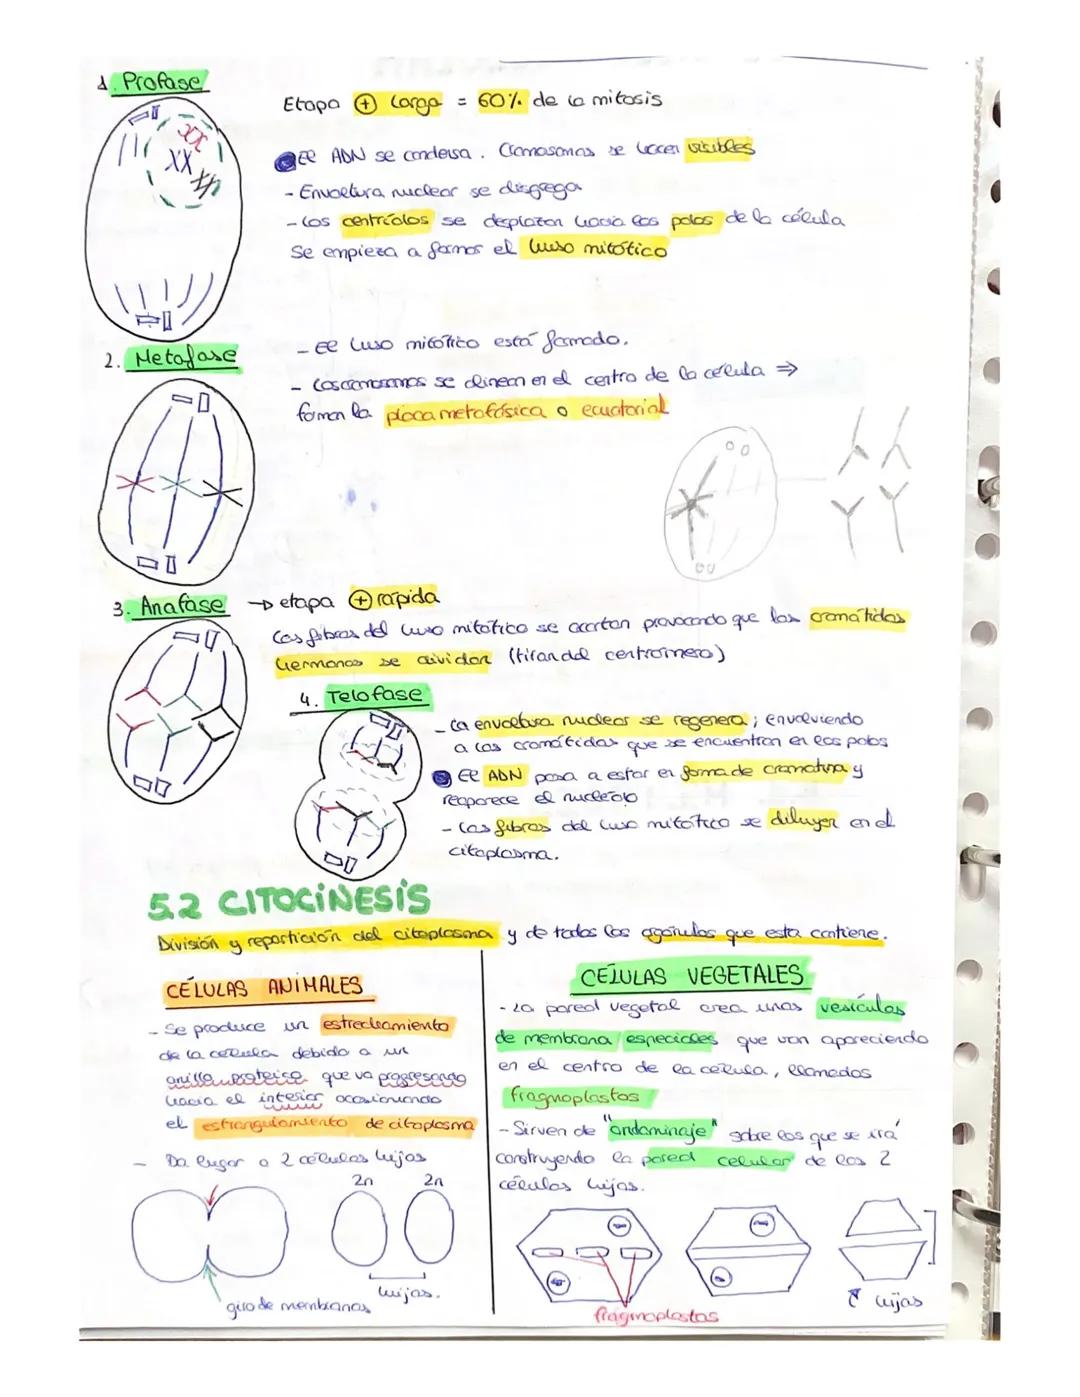 1. Profase
Etapa + larga = 60% de la mitosis
El ADN se condensa. Cromosomas se hacen visibles
- Envoltura nuclear se disgrega
- Los centríolos se desplazan hacia los polos de la célula
Se empieza a formar el huso mitótico
2. Metafase
- El huso mitótico está formado.
- Los cromosomas se alinean en el centro de la célula ⇒
forman la placa metafásica o ecuatorial
3. Anafase → etapa + rápida
Las fibras del huso mitótico se acortan provocando que las cromátidas
hermanas se dividan (tiran del centrómero)
4. Telofase
- La envoltura nuclear se regenera; envolviendo
a las cromátidas que se encuentran en los polos
El ADN pasa a estar en forma de cromatina y
reaparece el nucleolo
- Las fibras del huso mitótico se diluyen en el
citoplasma.
5.2 CITOCINESIS
División y repartición del citoplasma y de todos los orgánulos que esta contiene.
CÉLULAS ANIMALES
- Se produce un estrechamiento
de la célula debido a un
anillo proteico que va progresando
hacia el interior ocasionando
el estrangulamiento de citoplasma
- Da lugar a 2 células hijas
2n 2n
hijas.
giro de membranas
CÉLULAS VEGETALES
- La pared vegetal crea unas vesículas
de membrana especiales que van apareciendo
en el centro de la célula, llamados
fragmoplastos
- Sirven de "andaminaje" sobre los que se irá
construyendo la pared celular de las 2
células hijas.
fragmoplastos
hijas